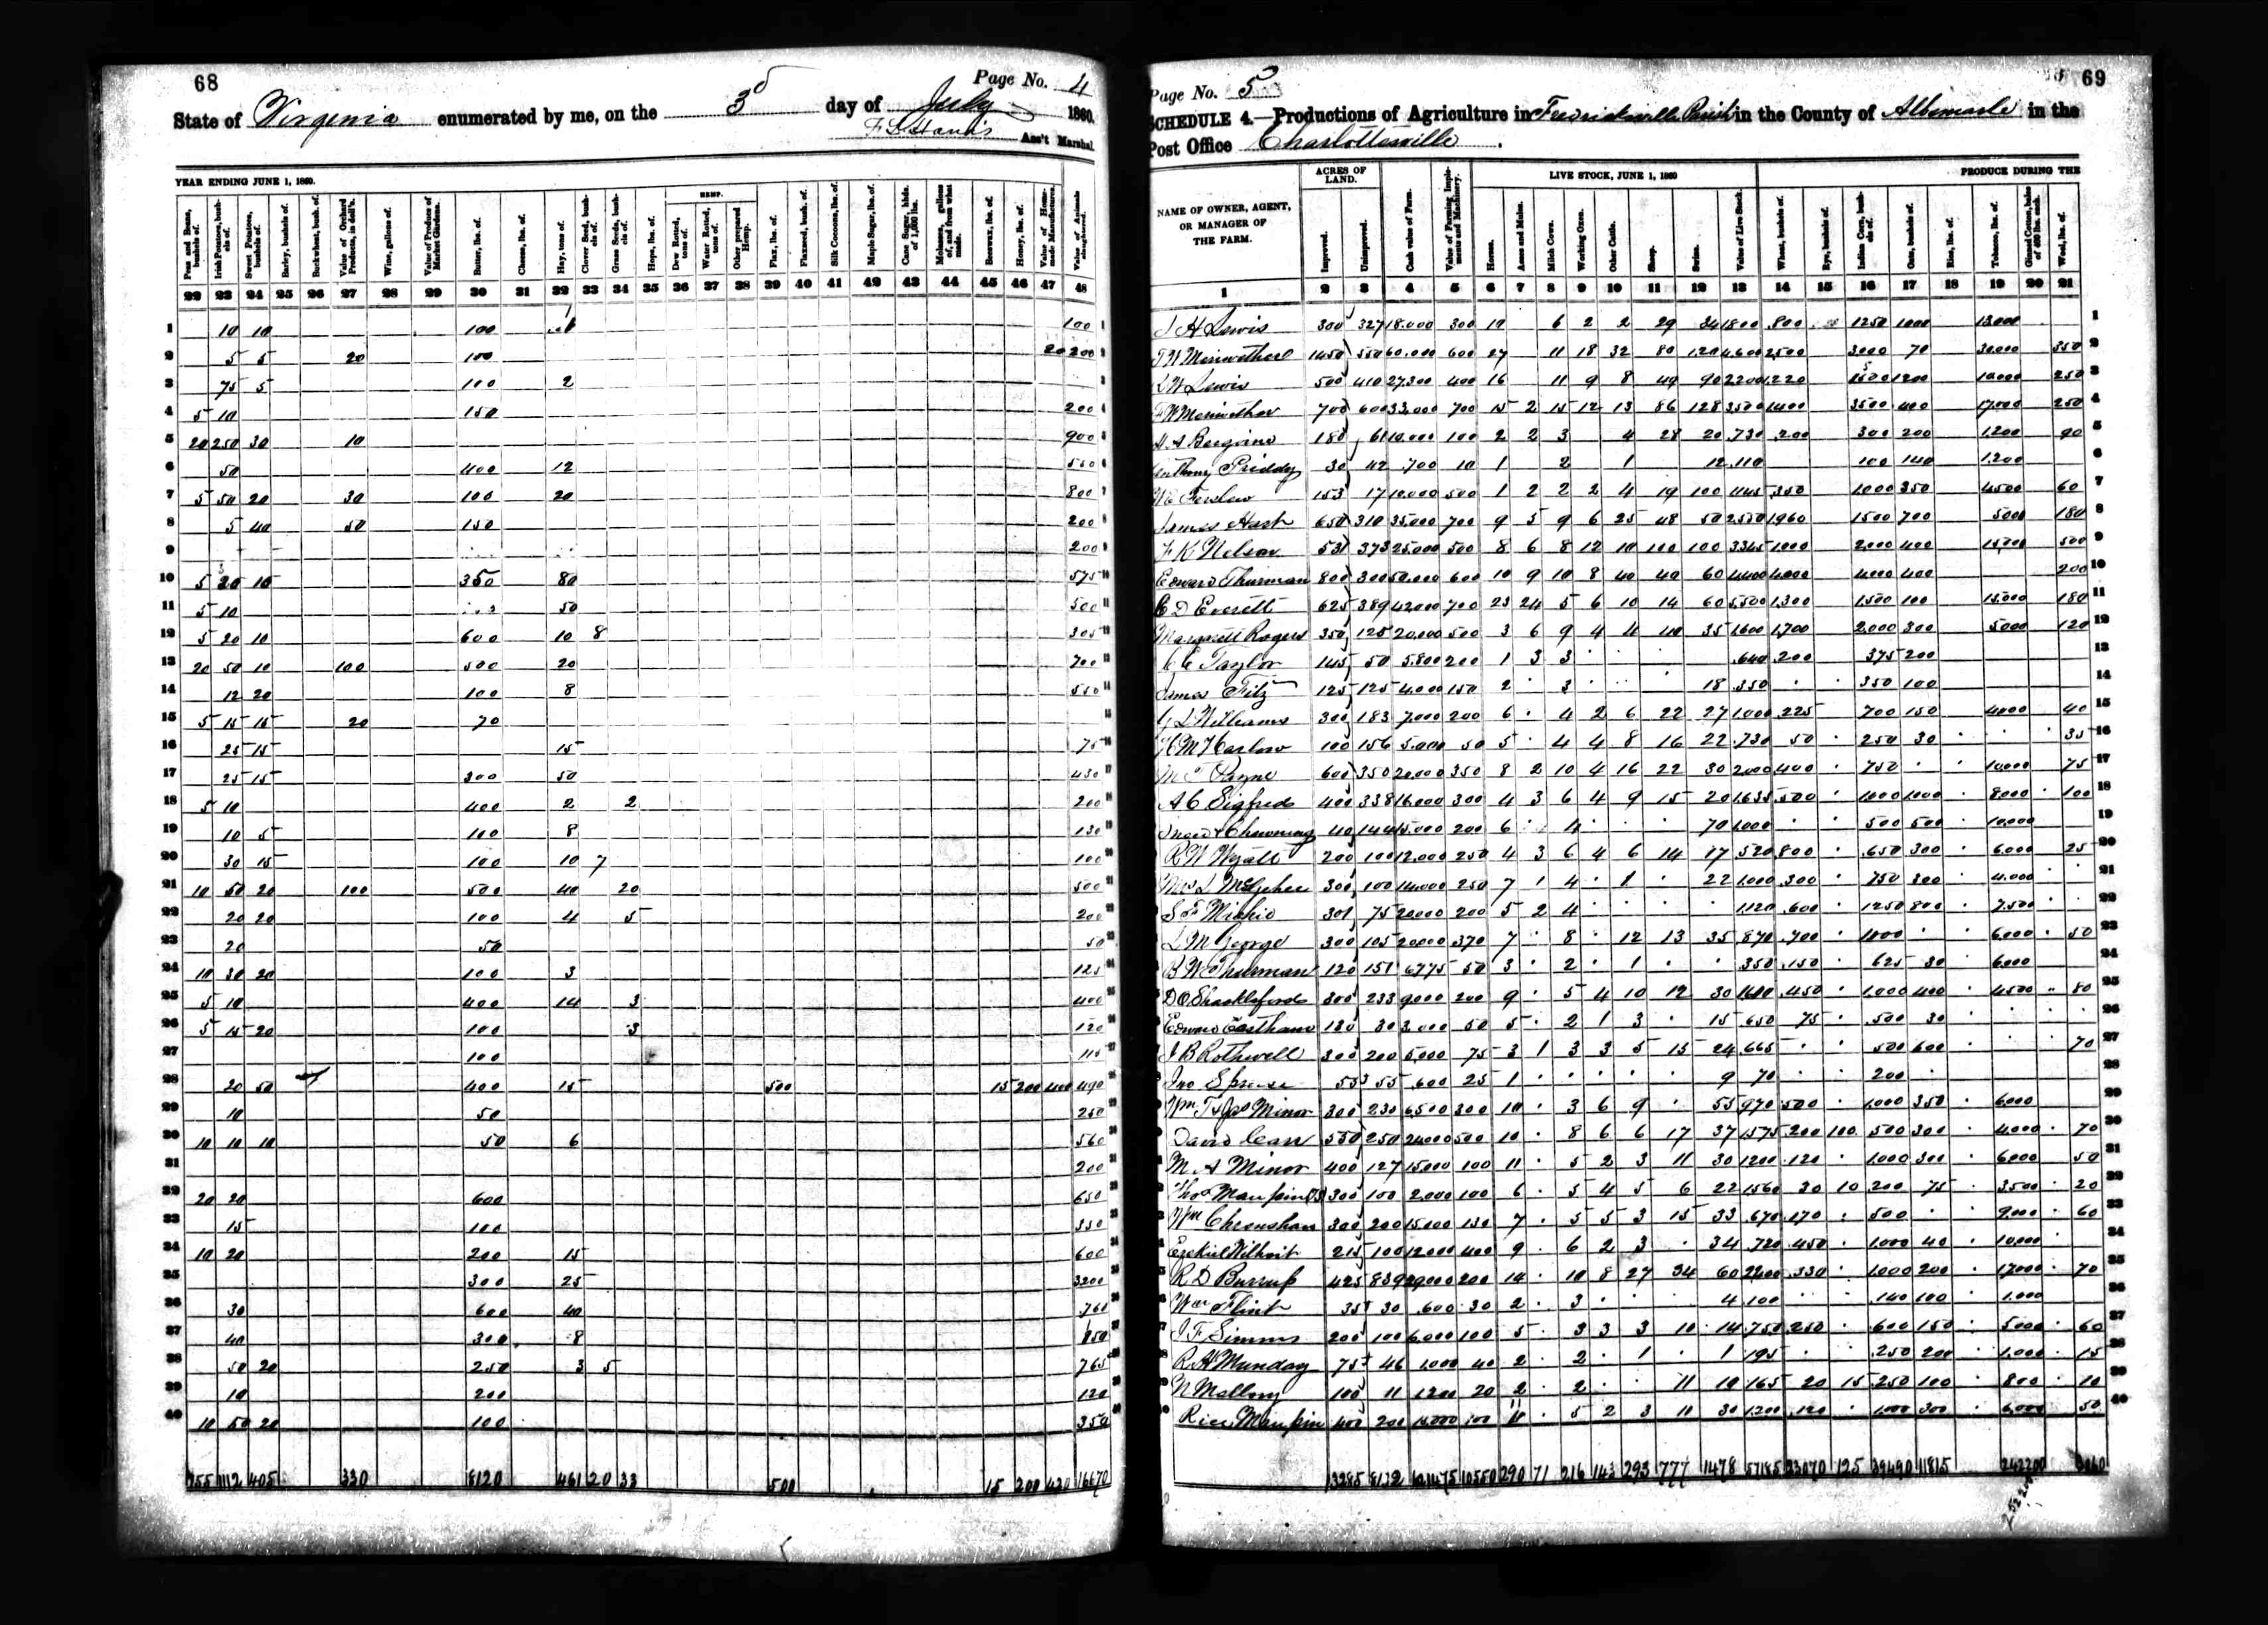 68
Page No. 4
State of Virginia enumerated by me, on the 3d day of July 1860.
Ass't Marshal.
YEAR ENDING JUNE 1, 1860.
HEMP.
Peas and Beans, bushels of. Irish Potatoes, bushels of. Sweet Potatoes, bushels of. Barley, bushels of. Buckwheat, bush. of. Value of Orchard Products, in doll's. Wine, gallons of. Value of Produce of Market Gardens. Butter, lbs. of. Cheese, lbs. of. Hay, tons of. Clover Seed, bushels of. Grass Seeds, bushels of. Hops, lbs. of. Dew Rotted, tons of. Water Rotted, tons of. Other prepared Hemp. Flax, lbs. of. Flaxseed, bush. of. Silk Cocoons, lbs. of. Maple Sugar, lbs. of. Cane Sugar, hhds. of 1,000 lbs. Molasses, gallons of, and from what made. Beeswax, lbs. of. Honey, lbs. of. Value of Home-made Manufactures. Value of Animals slaughtered.
22 23 24 25 26 27 28 29 30 31 32 33 34 35 36 37 38 39 40 41 42 43 44 45 46 47 48
1 10 10 100 100 1
2 5 5 20 100 20 200 2
3 75 5 100 2 3
4 5 10 150 200 4
5 20 250 30 10 900 5
6 50 400 12 550 6
7 5 50 20 30 100 20 800 7
8 5 40 50 150 200 8
9 200 9
10 5 20 10 350 80 575 10
11 5 10 50 500 11
12 5 20 10 600 10 8 305 12
13 20 50 10 100 500 20 700 13
14 12 20 100 8 550 14
15 5 15 15 20 70 15
16 25 15 15 75 16
17 25 15 300 50 430 17
18 5 10 400 2 2 200 18
19 10 5 100 8 130 19
20 30 15 100 10 7 100 20
21 10 50 20 100 500 40 20 500 21
22 20 20 100 4 5 200 22
23 20 50 50 23
24 10 30 20 100 3 125 24
25 5 10 400 14 3 400 25
26 5 15 20 100 3 120 26
27 100 115 27
28 20 50 400 15 500 15 200 400 490 28
29 10 50 250 29
30 10 10 10 50 6 560 30
31 200 31
32 20 20 600 650 32
33 15 100 350 33
34 10 20 200 15 600 34
35 300 25 3200 35
36 30 600 40 760 36
37 40 300 8 850 37
38 50 20 250 3 5 765 38
39 10 200 120 39
40 10 50 20 100 350 40
155 1112 405 330 8120 461 20 33 500 15 200 420 16670
69
Page No. 5
SCHEDULE 4.—Productions of Agriculture in Fredricksville Parish in the County of Albemarle in the
Post Office Charlottesville.
ACRES OF LAND. LIVE STOCK, JUNE 1, 1860 PRODUCE DURING THE
NAME OF OWNER, AGENT, OR MANAGER OF THE FARM. Improved. Unimproved. Cash value of Farm. Value of Farming Implements and Machinery. Horses. Asses and Mules. Milch Cows. Working Oxen. Other Cattle. Sheep. Swine. Value of Live Stock. Wheat, bushels of. Rye, bushels of. Indian Corn, bushels of. Oats, bushels of. Rice, lbs. of. Tobacco, lbs. of. Ginned Cotton, bales of 400 lbs. each. Wool, lbs. of.
1 2 3 4 5 6 7 8 9 10 11 12 13 14 15 16 17 18 19 20 21
Lewis 300 327 18.000 300 10 6 2 2 29 34 1800 800 1250 1000 13000 1
Meriwether 1450 550 60.000 600 27 11 18 32 80 120 4,600 2,500 3.000 70 30.000 350 2
Lewis 500 410 27,300 400 16 11 9 8 49 90 2200 1,220 1500 1200 10.000 250 3
Meriwether 700 600 33.000 700 15 2 15 12 13 86 128 3500 1400 3500 400 17,000 250 4
180 61 10.000 100 2 2 3 4 28 20 730 200 300 200 1.200 90 5
Anthony Priddy 30 42 700 10 1 2 1 12 110 100 140 1.200 6
153 17 10.000 500 1 2 2 2 4 19 100 1145 350 1000 350 4500 60 7
James Hart 650 310 35.000 700 9 5 9 6 25 48 50 2550 1,960 1500 700 5000 180 8
F K Nelson 531 373 25.000 500 8 6 8 12 10 100 100 3345 1000 2.000 400 15,000 500 9
Edward Thurman 800 300 50.000 600 10 9 10 8 40 40 60 4,400 4,000 4.000 400 200 10
C D Everett 625 389 42000 700 23 24 5 6 10 14 60 5,500 1,300 1,500 100 15.000 180 11
Margarett Rogers 350 125 20.000 500 3 6 9 4 11 40 35 1600 1,700 2,000 300 5000 120 12
C E Taylor 145 50 5.800 200 1 3 3 640 200 375 200 13
James Fitz 125 125 4.000 150 2 3 18 350 350 100 14
Williams 300 183 7,000 200 6 4 2 6 22 27 1.000 225 700 150 4000 40 15
H M Harlow 100 156 5.000 50 5 4 4 8 16 22 730 50 250 30 35 16
M T Payne 600 350 20.000 350 8 2 10 4 16 22 30 2000 400 750 10.000 75 17
A C Sigfred 400 338 16.000 300 4 3 6 4 9 15 20 1,635 500 1000 1,000 8000 100 18
Chewning 40 144 15.000 200 6 4 70 1,000 500 500 10,000 19
R W Wyatt 200 100 12,000 250 4 3 6 4 6 14 17 520 800 650 300 6000 25 20
Mrs L McGehee 300 100 14,000 250 7 1 4 1 22 1.000 300 750 300 4.000 21
S F Michie 301 75 20000 200 5 2 4 1120 600 1250 800 7,500 22
L M George 300 105 20000 370 7 8 12 13 35 870 700 1000 6000 50 23
B W Thurman 120 151 6775 50 3 2 1 350 150 625 30 6000 24
D O Shackleford 300 233 9000 200 9 5 4 10 12 30 1610 450 1,000 400 4500 80 25
Edward Eastham 130 30 3.000 50 5 2 1 3 15 650 75 500 30 26
J B Rothwell 300 200 5,000 75 3 1 3 3 5 15 24 665 500 600 70 27
Jno Spruse 55 55 600 25 1 9 70 200 28
Wm T & Jas Minor 300 230 6,500 300 10 3 6 9 55 970 500 1,000 350 6000 29
David Carr 550 250 24000 500 10 8 6 6 17 37 1,575 200 100 500 300 4.000 70 30
M A Minor 400 127 15,000 100 11 5 2 3 11 30 1200 120 1,000 300 6000 50 31
Thos Maupin 300 100 2,000 100 6 5 4 5 6 22 1560 30 10 200 75 3500 20 32
Wm Chrenshaw 300 200 15,100 130 7 5 5 3 15 33 670 170 500 9,000 60 33
Ezekiel Wilhoit 215 100 12000 400 9 6 2 3 34 720 450 1,000 40 10,000 34
R D Burruss 425 839 29,000 200 14 10 8 27 34 60 2400 330 1,000 200 17000 70 35
Wm Flint 35 30 600 30 2 3 4 100 140 100 1.000 36
J F Simms 200 100 6,000 100 5 3 3 3 10 14 750 250 600 150 5000 60 37
R H Munday 75 46 1,000 40 2 2 1 1 195 250 200 1,000 15 38
N Mallory 100 11 1200 20 2 2 11 10 165 20 15 250 100 800 10 39
Rice Maupin 400 200 100 11 5 2 3 11 30 1,200 120 1,000 300 6,000 50 40
13285 8132 621475 10550 290 71 216 143 293 777 1478 57185 23070 125 39490 11815 242200 3060
252200